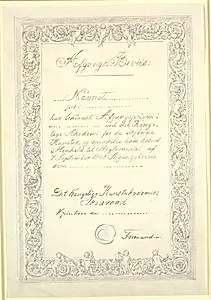 Afgangs-Beviis.
Navnet
født
har bestaaet Afgangsprøven i
ved det Konge-
lige Akademi for de skjønne
Kunster, og meddeles som
Henhold til Reglementet af
Afgangsbeviis
den
Det Kongelige Kunstakademies
Skoleraad
Kjøbenhavn den
Formanden